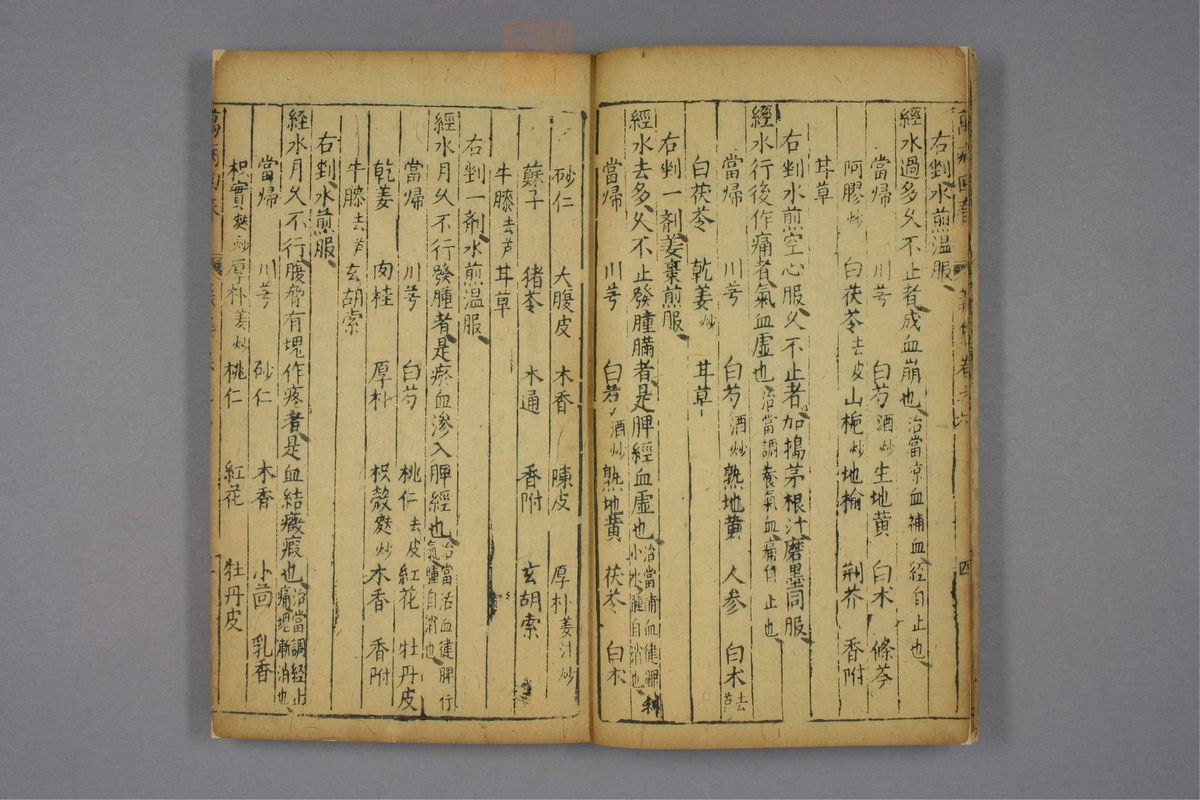 右剉水煎溫服
經水過多久不止者成血崩也治當凉血補血經自止也
當歸 川芎 白芍酒炒 生地黄 白朮 條芩
阿膠炒 白茯苓去皮 山梔炒 地榆 荆芥 香附
甘草
右剉水煎空心服久不止者加搗茅根汁磨墨同服
經水行後作痛者氣血虛也治當調養氣血痛自止也
當歸 川芎 白芍酒炒 熟地黄 人參 白朮去芦
白茯苓 乾姜炒 甘草
右剉一剤姜棗煎服
經水去多久不止發腫滿者是脾經血虛也治當補血健脾利小水腫自消也
當帰 川芎 白芍酒炒 熟地黄 茯苓 白朮
砂仁 大腹皮 木香 陳皮 厚朴姜汁炒
蘇子 猪苓 木通 香附 玄胡索
牛膝去芦 甘草
右剉一剤水煎温服
經水月久不行發腫者是瘀血滲入脾經也治當活血健脾行氣腫自消也
當帰 川芎 白芍 桃仁去皮 紅花 牡丹皮
乾姜 肉桂 厚朴 枳殻麩炒 木香 香附
牛膝去芦 玄胡索
右剉水煎服
經水月久不行腹脅有塊作疼者是血結癥瘕也治當調経止痛塊漸消也
當帰 川芎 砂仁 木香 小茴 乳香
枳實麩炒 厚朴姜炒 桃仁 紅花 牡丹皮